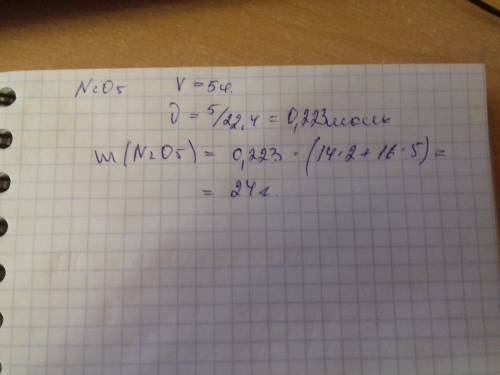 N2O5 V = 5л.
ν = 5/22,4 = 0,223 моль
m(N2O5) = 0,223 · (14·2+16·5) =
= 24 г.